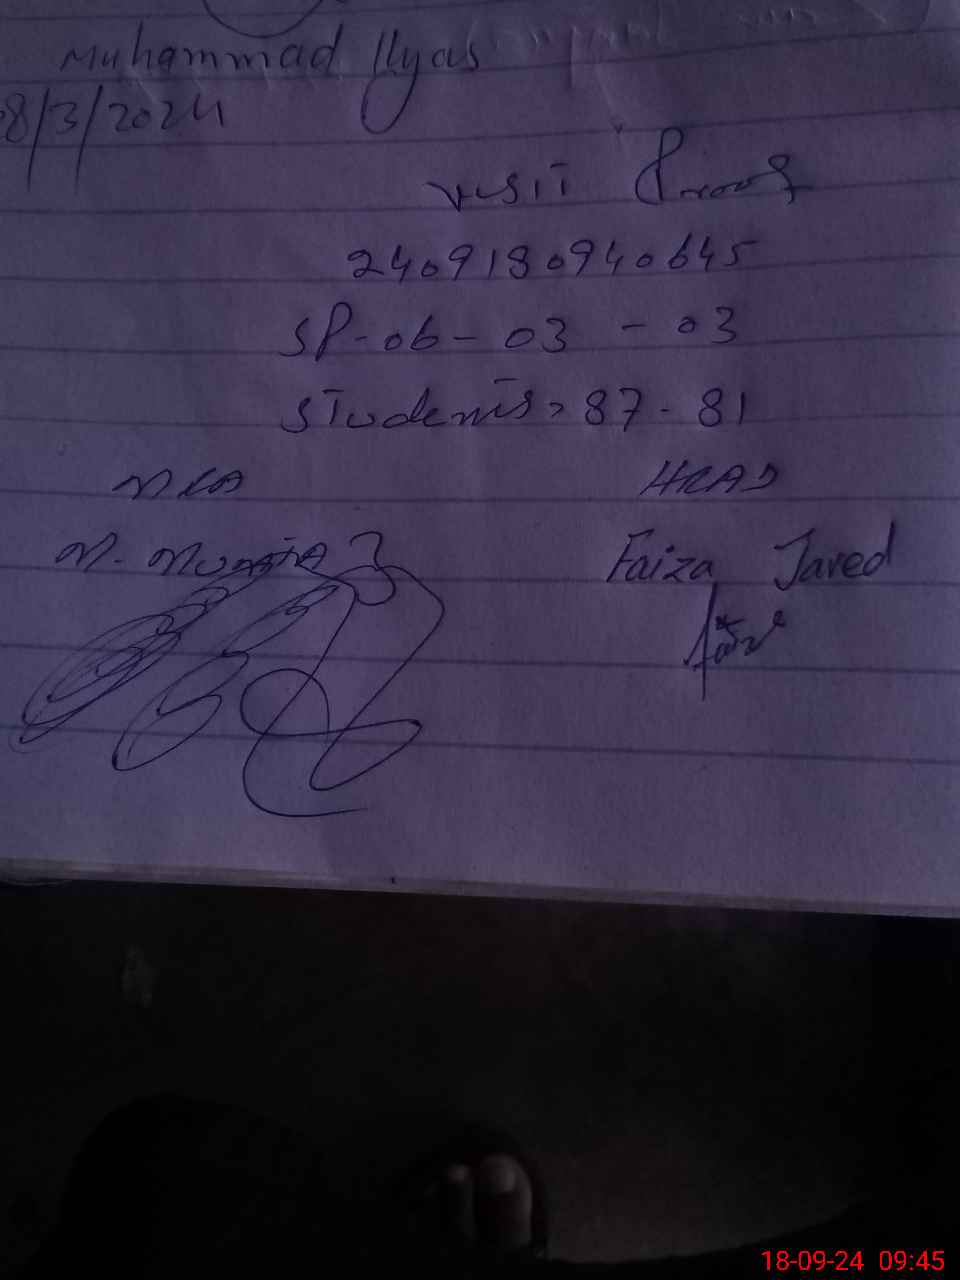 Muhammad Ilyas
8/3/2024
Visit Proof
2409180940645
SP-06-03 - 03
Students > 87 - 81
MEA HEAD
M. Faiza Javed
18-09-24 09:45